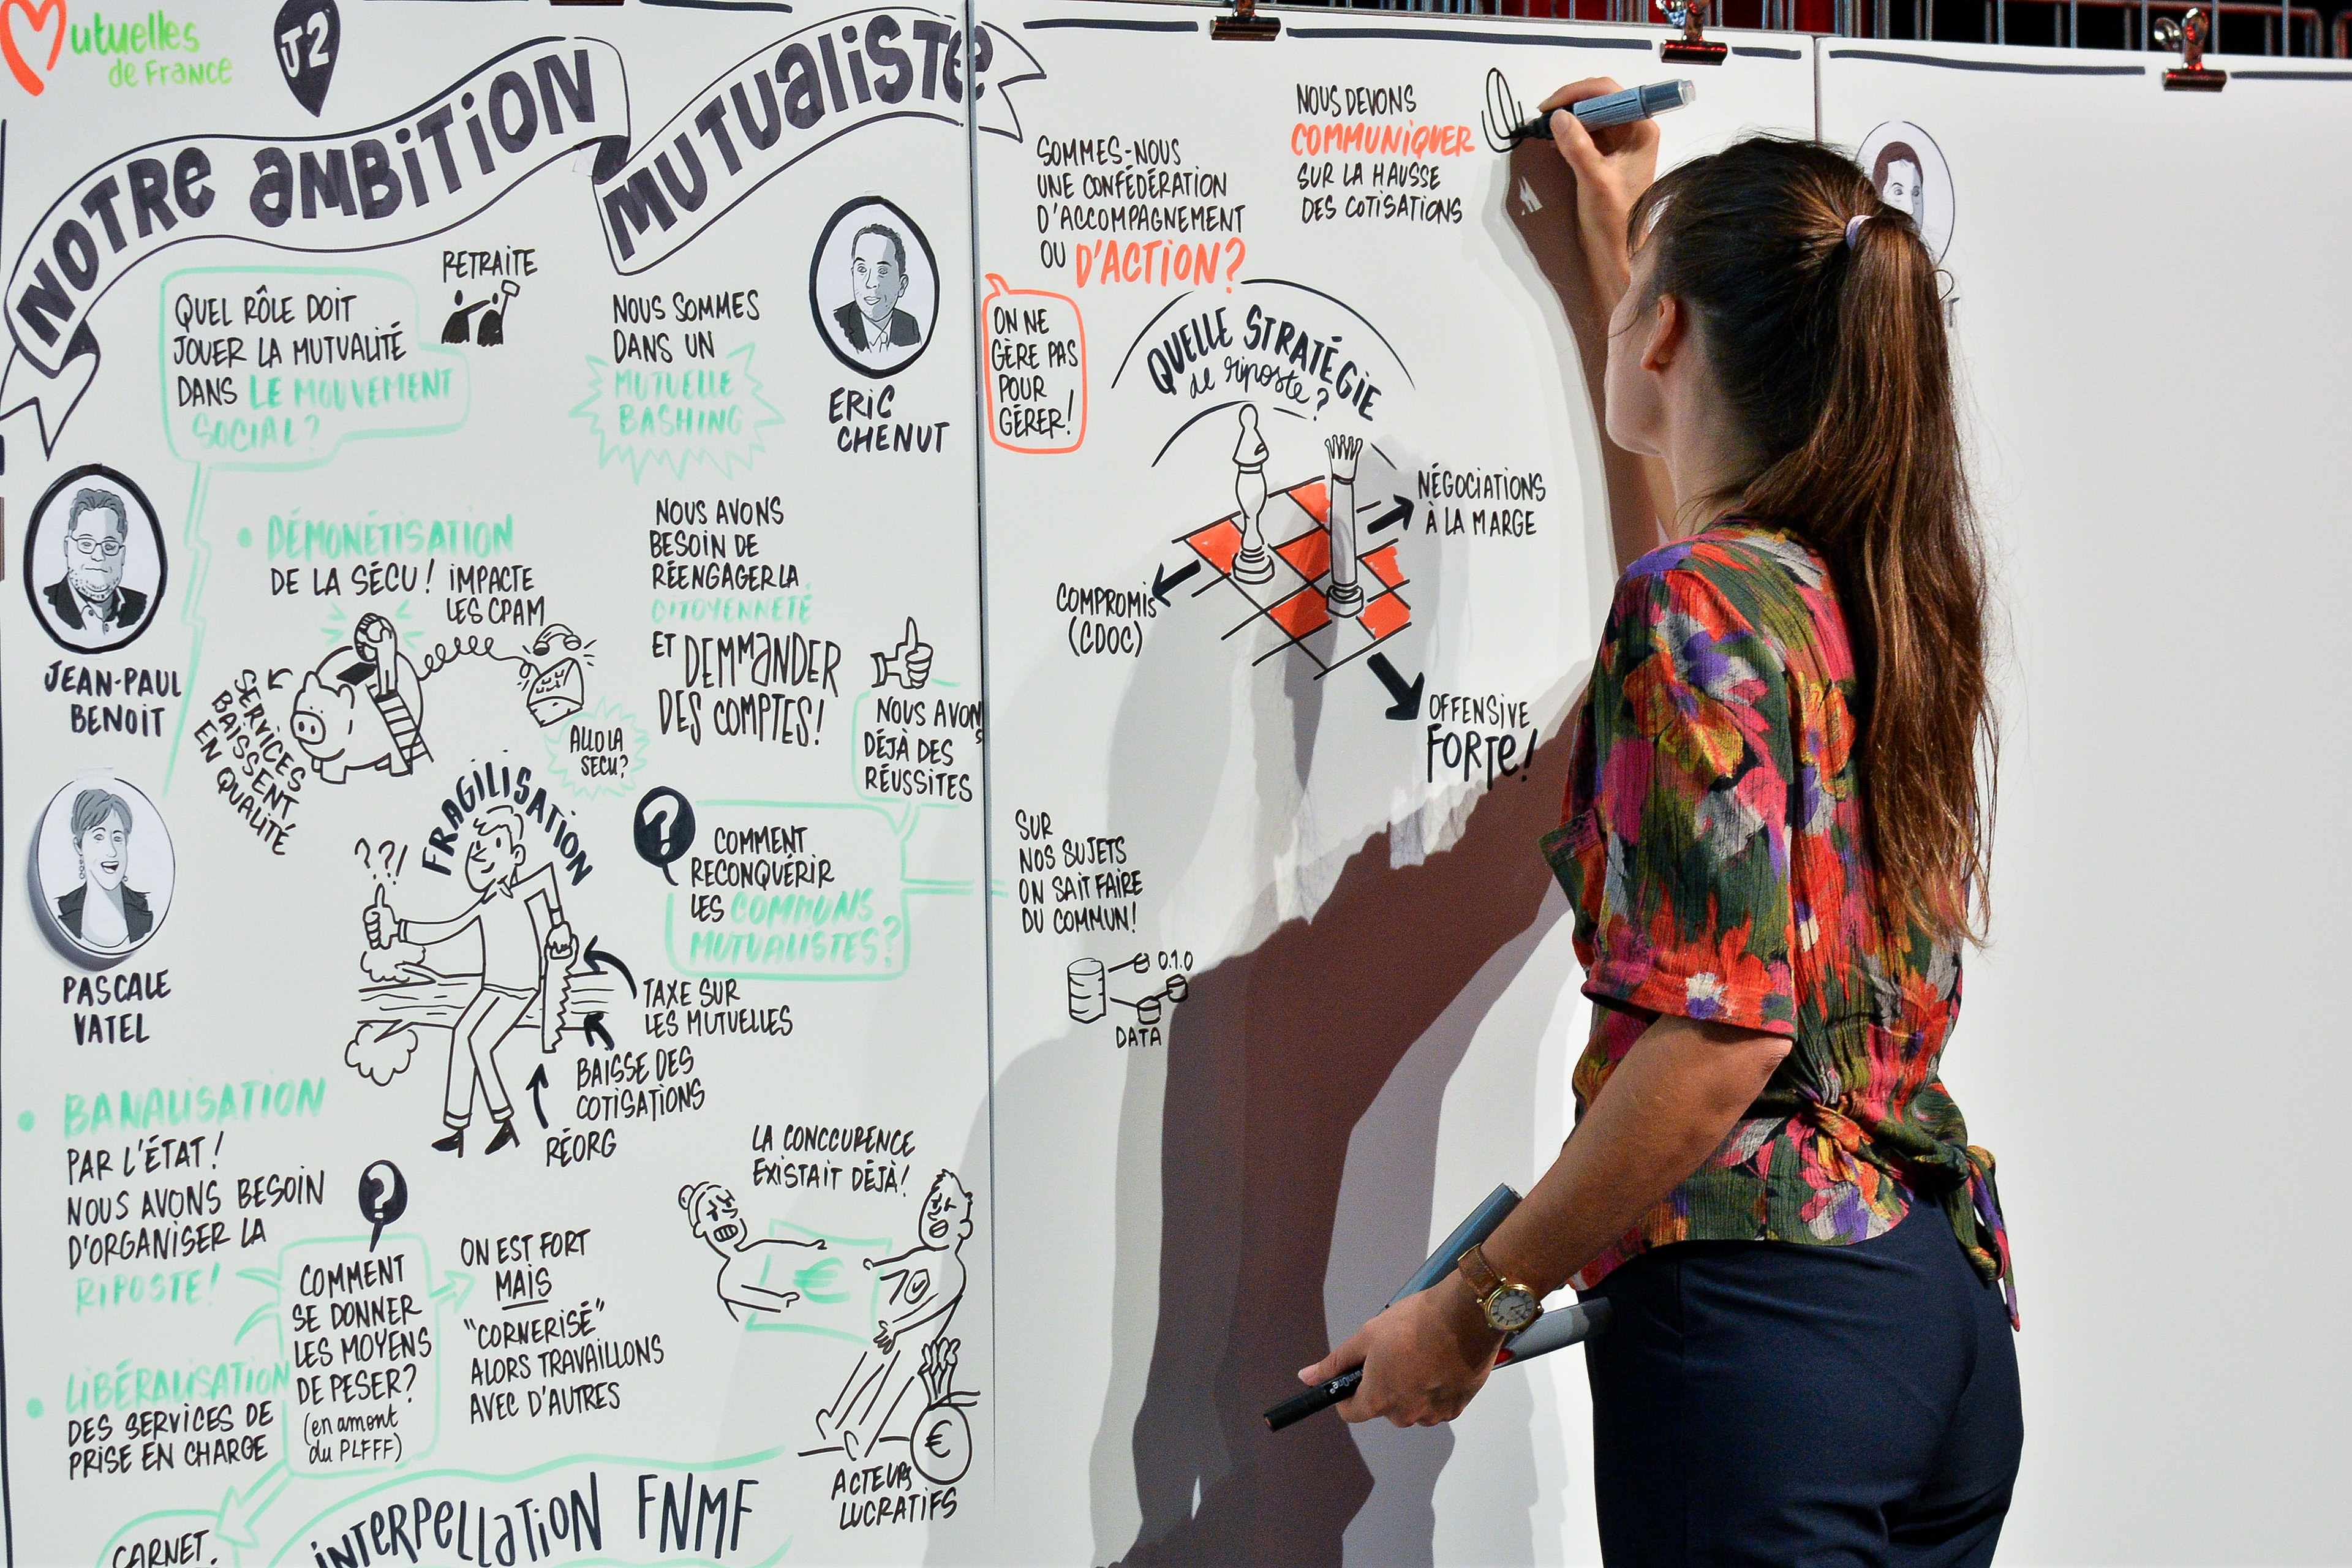 Mutuelles
de France
J2
NOTRE AMBITION
MUTUALISTE
RETRAITE
QUEL RÔLE DOIT
JOUER LA MUTUALITÉ
DANS LE MOUVEMENT
SOCIAL?
NOUS SOMMES
DANS UN
MUTUELLE
BASHING
ERIC
CHENUT
JEAN-PAUL
BENOIT
• DÉMONÉTISATION
DE LA SÉCU! IMPACTE
LES CPAM
SERVICES
BAISSENT
EN QUALITÉ
ALLO LA
SECU?
NOUS AVONS
BESOIN DE
RÉENGAGER LA
CITOYENNETÉ
ET DEMMANDER
DES COMPTES!
NOUS AVONS
DÉJÀ DES
RÉUSSITES
PASCALE
VATEL
FRAGILISATION
??!
?
COMMENT
RECONQUÉRIR
LES COMMUNS
MUTUALISTES?
TAXE SUR
LES MUTUELLES
BAISSE DES
COTISATIONS
RÉORG
• BANALISATION
PAR L'ÉTAT!
NOUS AVONS BESOIN
D'ORGANISER LA
RIPOSTE!
?
COMMENT
SE DONNER
LES MOYENS
DE PESER?
(en amont
du PLFFF)
ON EST FORT
MAIS
"CORNERISÉ"
ALORS TRAVAILLONS
AVEC D'AUTRES
LA CONCCURENCE
EXISTAIT DÉJÀ!
€
€
ACTEURS
LUCRATIFS
• LIBÉRALISATION
DES SERVICES DE
PRISE EN CHARGE
CARNET.
INTERPELLATION FNMF
SOMMES-NOUS
UNE CONFÉDÉRATION
D'ACCOMPAGNEMENT
OU D'ACTION?
NOUS DEVONS
COMMUNIQUER
SUR LA HAUSSE
DES COTISATIONS
ON NE
GÈRE PAS
POUR
GÉRER!
QUELLE STRATÉGIE
de riposte?
NÉGOCIATIONS
À LA MARGE
COMPROMIS
(CDOC)
OFFENSIVE
FORTE!
SUR
NOS SUJETS
ON SAIT FAIRE
DU COMMUN!
0.1.0
DATA